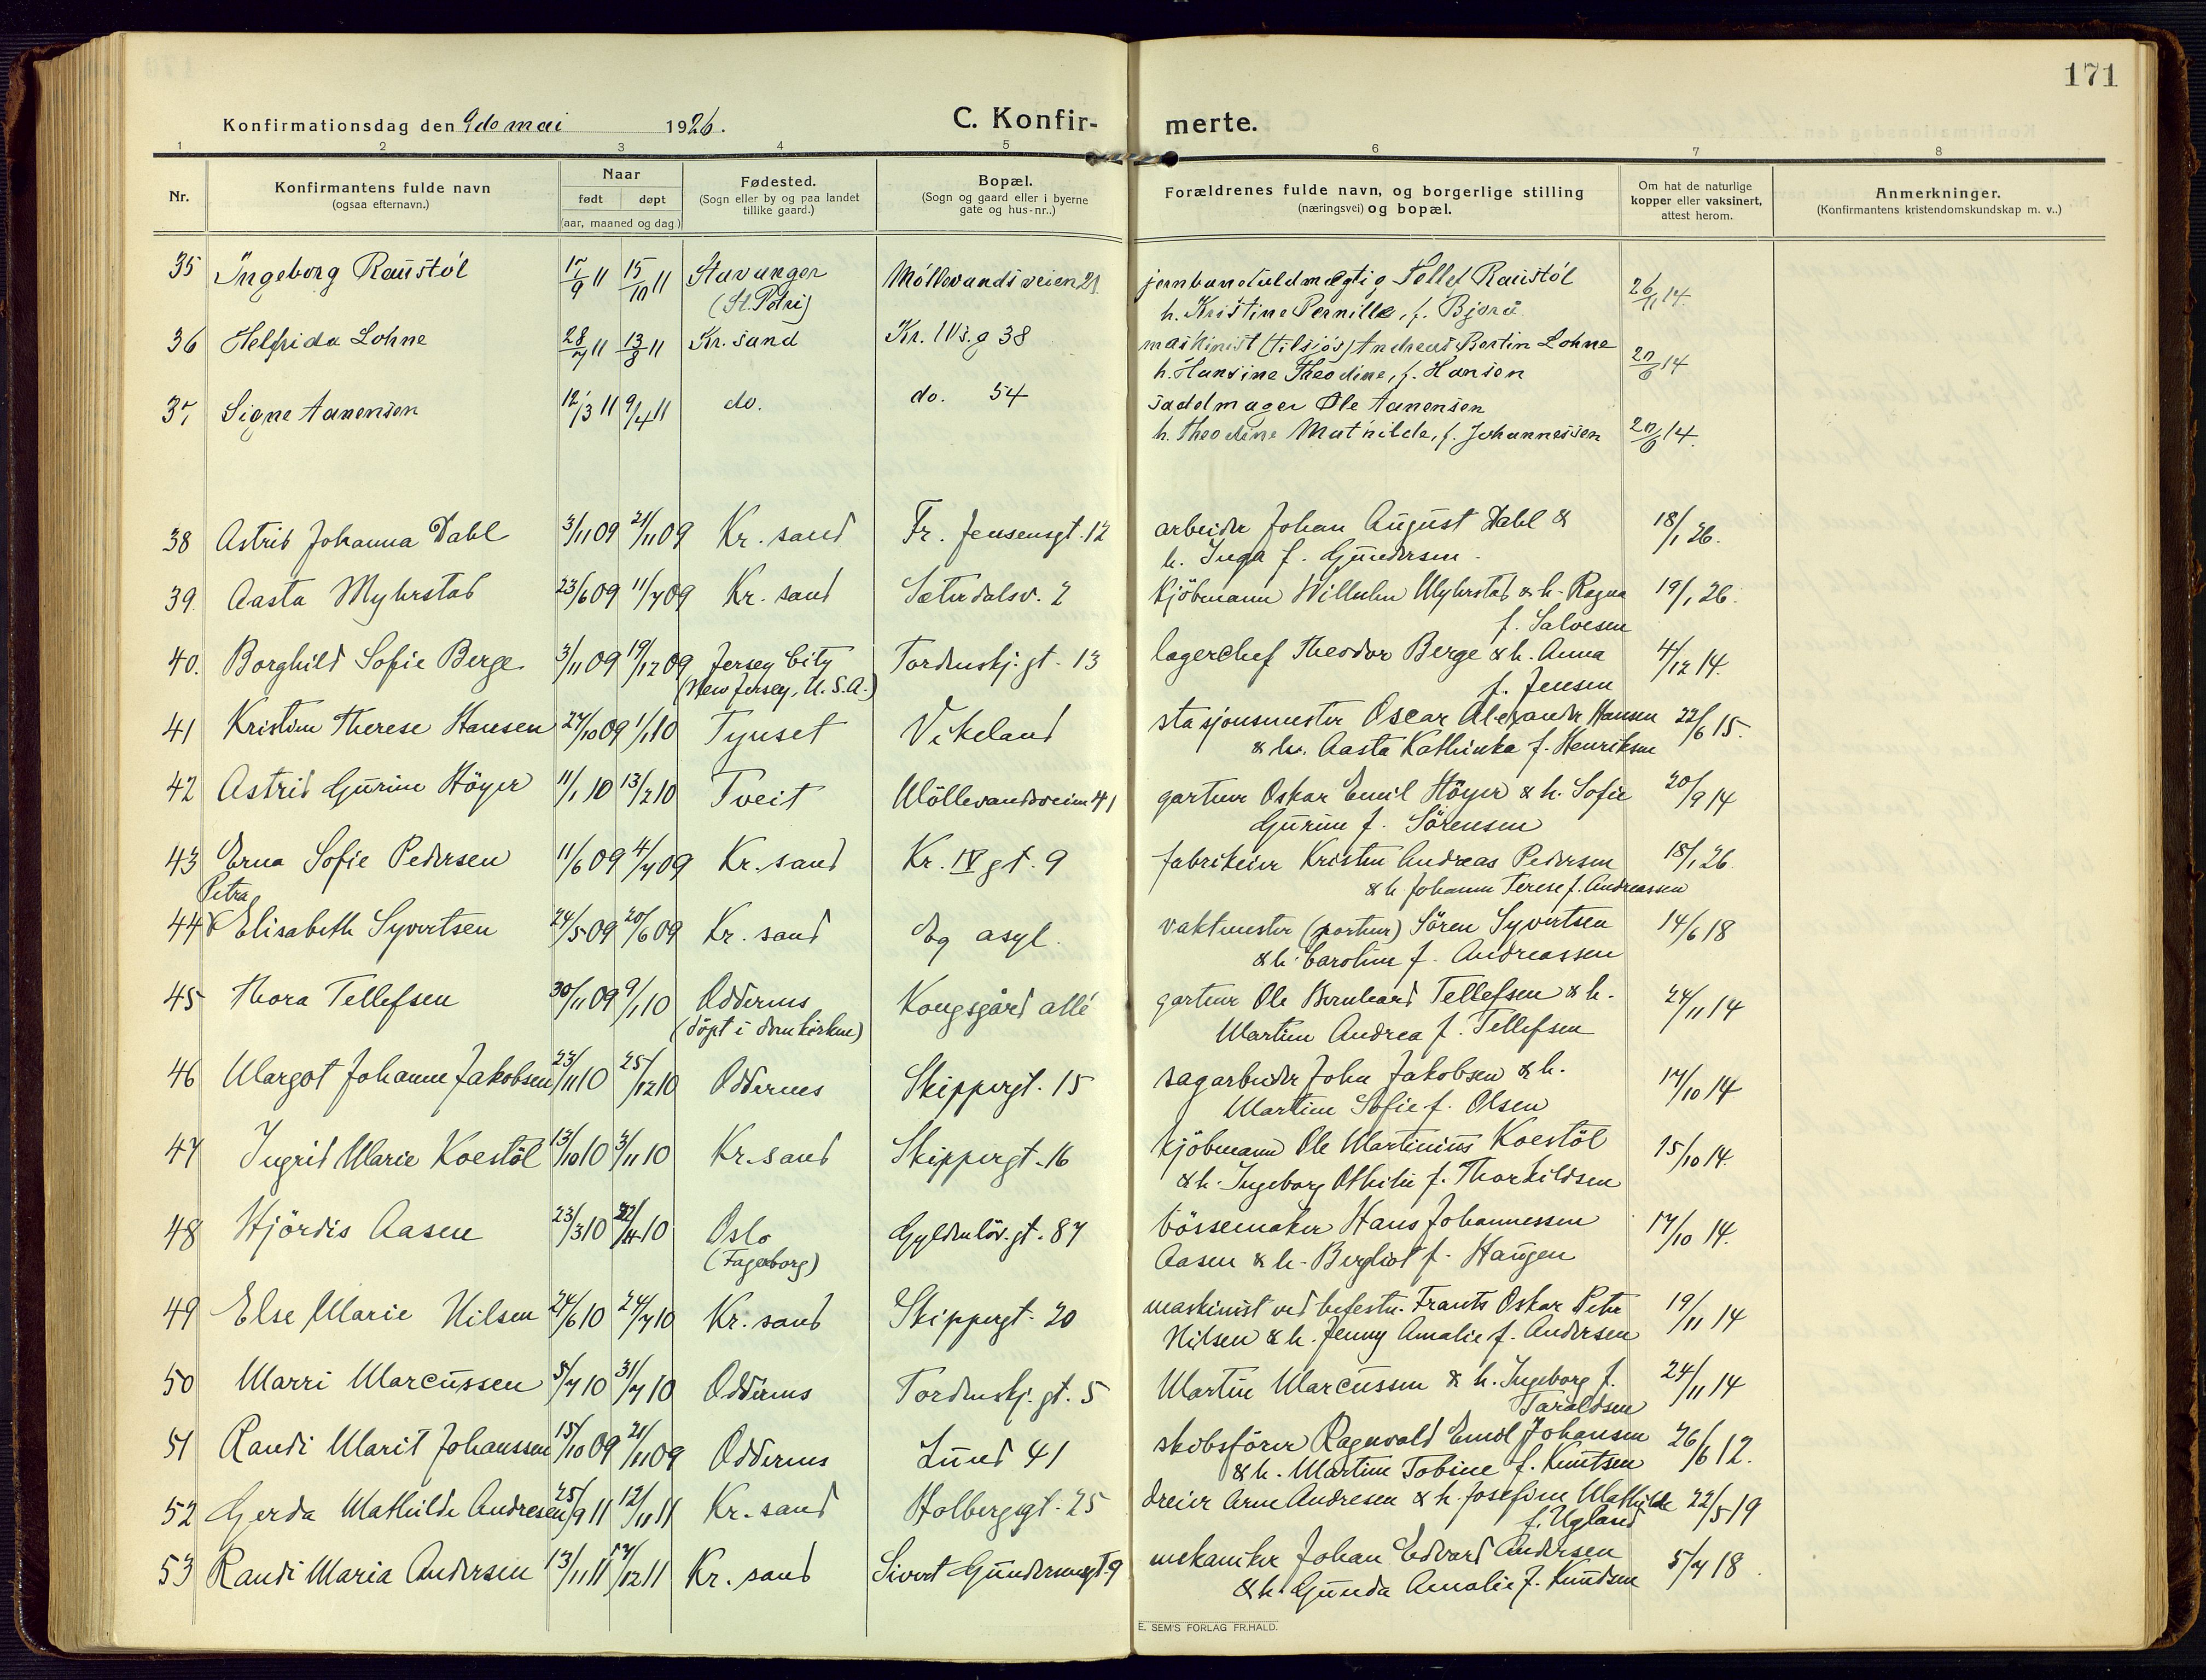 171
Konfirmationsdag den 9de mai 1926.
C. Konfir-
merte.
1 2 3 4 5 6 7 8
Nr.
Konfirmantens fulde navn
(ogsaa efternavn.)
Naar
født døpt
(aar, maaned og dag)
Fødested.
(Sogn eller by og paa landet
tillike gaard.)
Bopæl.
(Sogn og gaard eller i byerne
gate og hus-nr..)
Forældrenes fulde navn, og borgerlige stilling
(næringsvei) og bopæl.
Om hat de naturlige
kopper eller vaksinert,
attest herom.
Anmerkninger.
(Konfirmantens kristendomskundskap m. v..)
35 Ingeborg Raustöl 17/9 11 15/10 11 Stavanger Möllevandsveien 21 jernbanefuldmegtig Tellef Raustöl 26/11 14.
(St. Petri) h. Kristine Pernille, f. Bjorå
36 Helfrida Lohne 28/7 11 13/8 11 Kr. sand Kr. IVs. g 38 maskinist (tilsjøs) Andreas Bertin Lohne 27/6 14
h. Hansine Theodine, f. Hansen
37 Signe Aanensen 12/3 11 9/4 11 do. do. 54 sadelmager Ole Aanensen
h. Theodine Mathilde, f. Johannessen 27/6 14.
38 Astrid Johanna Dahl 3/11 09 21/11 09 Kr. sand Fr. Jensensgt. 12 arbeider Johan August Dahl & 18/1 26.
h. Inga f. Gundersen.
39. Aasta Myhrstad 23/6 09 11/7 09 Kr. sand Setesdalsv. 2 kjöbmann Wilhelm Myhrstad & h. Ragna 19/1 26.
f. Salvesen
40. Borghild Sofie Berge 3/11 09 19/12 09 Jersey City Tordenskj. gt. 13 lagerchef Theodor Berge & h. Anna 4/12 14.
(New Jersey, U.S.A.) f. Jensen
41 Kristine Therese Hansen 27/10 09 1/1 10 Tynset Vikeland stasjonsmester Oscar Alexander Hansen 22/6 15.
& h. Aasta Kathinka f. Henriksen
42 Astrid Gurine Höyer 11/1 10 13/2 10 Tveit Möllevandsveien 41 gartner Oskar Emil Höyer & h. Sofie 20/9 14
Gurine f. Sörensen
43 Erna Sofie Pedersen 11/6 09 4/7 09 Kr. sand Kr. IV gt. 9 fabrikeier Kristen Andreas Pedersen 18/1 26.
& h. Johanne Terese f. Andreassen
Petra
44 Elisabeth Syvertsen 24/5 09 20/6 09 Kr. sand Eg asyl. vaktmester (portner) Sören Syvertsen 14/6 18
& h. Caroline f. Andreassen
45 Thora Tellefsen 30/11 09 9/1 10 Oddernes Kongsgård allé gartner Ole Bernhard Tellefsen & h. 24/11 14
(döpt i domkirken) Martine Andrea f. Tellefsen
46 Margot Johanne Jakobsen 23/11 10 25/12 10 Oddernes Skippergt. 15 sagarbeider John Jakobsen & h. 17/10 14
Martine Sofie f. Olsen
47 Ingrid Marie Koestöl 13/10 10 3/11 10 Kr. sand Skippergt. 16 kjöbmann Ole Martinius Koestöl 15/10 14.
& h. Ingeborg Othilie f. Thorkildsen
48 Hjördis Aasen 23/3 10 22/4 10 Oslo Gyldenlöv. gt. 87 bössemaker Hans Johannessen 17/10 14.
(Fagerborg) Aasen & h. Bergliot f. Haugen
49 Else Marie Nilsen 24/6 10 24/7 10 Kr. sand Skippergt. 20 maskinist ved befestn. Frants Oskar Peter 19/11 14
Nilsen & h. Jenny Amalie f. Andersen
50 Marri Marcussen 5/7 10 31/7 10 Oddernes Tordenskj. gt. 5 Martin Marcussen & h. Ingeborg f. 24/11 14
Taraldsen
51 Randi Marit Johanssen 15/10 09 21/11 09 Oddernes Lund 41 skibsförer Ragnvald Emil Johansen 26/6 12.
& h. Martine Tobine f. Knutsen
52 Gerda Mathilde Andresen 25/9 11 12/11 11 Kr. sand Holbergsgt. 25 dreier Arne Andresen & h. Josefine Mathilde 22/5 19
f. Ugland
53 Randi Maria Andersen 13/11 11 17/12 11 Kr. sand Sivert Gundersensgt. 9 mekaniker Johan Edvard Andersen 5/7 18.
& h. Gunda Amalie f. Knudsen
E. SEM'S FORLAG FR.HALD.